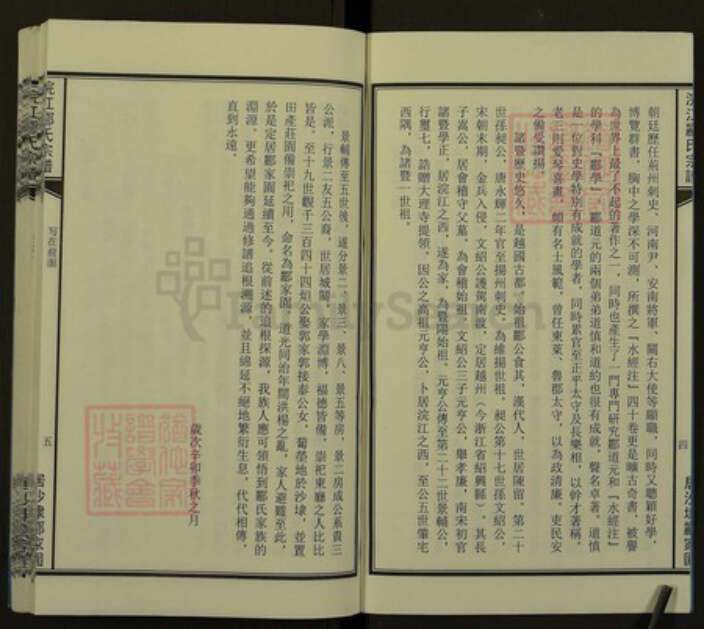 浣江酈氏宗譜
四
居沙埭酈家園
朝廷歷任荊州刺史、河南尹、安南將軍、關右大使等顯職，同時又聰穎好學，
博覽群書，胸中之學深不可測，所撰之『水經注』四十卷更是曠古奇書，被譽
為世界上最了不起的著作之一，同時也產生了一門專門研究酈道元和『水經注』
的學科『酈學』。酈道元的兩個弟弟道慎和道約也很有成就，聲名卓著。道慎
是一位對史學特別有成就的學者，同時累官至正平太守及長樂相，以幹才著稱，
老三則愛琴喜畫，頗有名士風範，曾任東萊、魯郡太守，以為政清廉、吏民安
之備受讚揚。
諸暨歷史悠久，是越國古都，始祖酈公食其，漢代人，世居陳留。第二十
世孫昶公，唐永輝二年官至揚州刺史，為維揚世祖。昶公第十七世孫文紹公，
宋朝末期，金兵入侵，文紹公護駕南渡，定居越州（今浙江省紹興縣），其長
子嵩公，居會稽守父墓，為會稽始祖。文紹公三子元亨公，舉孝廉，南宋初官
諸暨學正，居浣江之西，遂為家，為暨陽始祖。元亨公傳至第二十二世景輔公，
行璽七，誥贈大理寺提領。因公之高祖元亨公，卜居浣江之西，至公五世肇宅
西隅，為諸暨一世祖。
景輔傳至五世後，遂分景二、景三、景八、景五等房，景二房成公系貴三
公派，行景二友五公裔，世居城關，家學淵博，福德皆備，崇祀東廳之人比比
皆是。至十九世觀千三百四十四烜公娶郭家郭接泰公女，葡塋地於沙埭，並置
田產莊園備崇祀之用，命名為酈家園。道光同治年間洪楊之亂，家人避難至此，
於是定居酈家園延續至今。從前述的追根探源，我族人應可領悟到酈氏家族的
淵源，更希望能夠通過修譜追根溯源，並且綿延不絕地繁衍生息，代代相傳，
直到永遠。
歲次辛卯季秋之月
浣江酈氏宗譜
寫在前面
五
居沙埭酈家園
FamilySearch